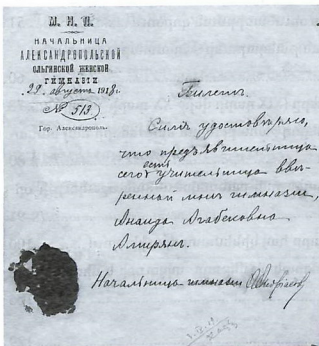 М. Н. П.
НАЧАЛЬНИЦА
АЛЕКСАНДРОПОЛЬСКОЙ
ОЛЬГИНСКОЙ ЖЕНСКОЙ
ГИМНАЗІИ
29 августа 1918 г.
№ 513
Гор. Александрополь.
Билетъ.
Симъ удостовѣряю,
что предъявительница
сего есть учительница ввѣ-
ренной мнѣ гимназіи,
Анаида Агабековна
Амирянъ.
Начальница гимназіи